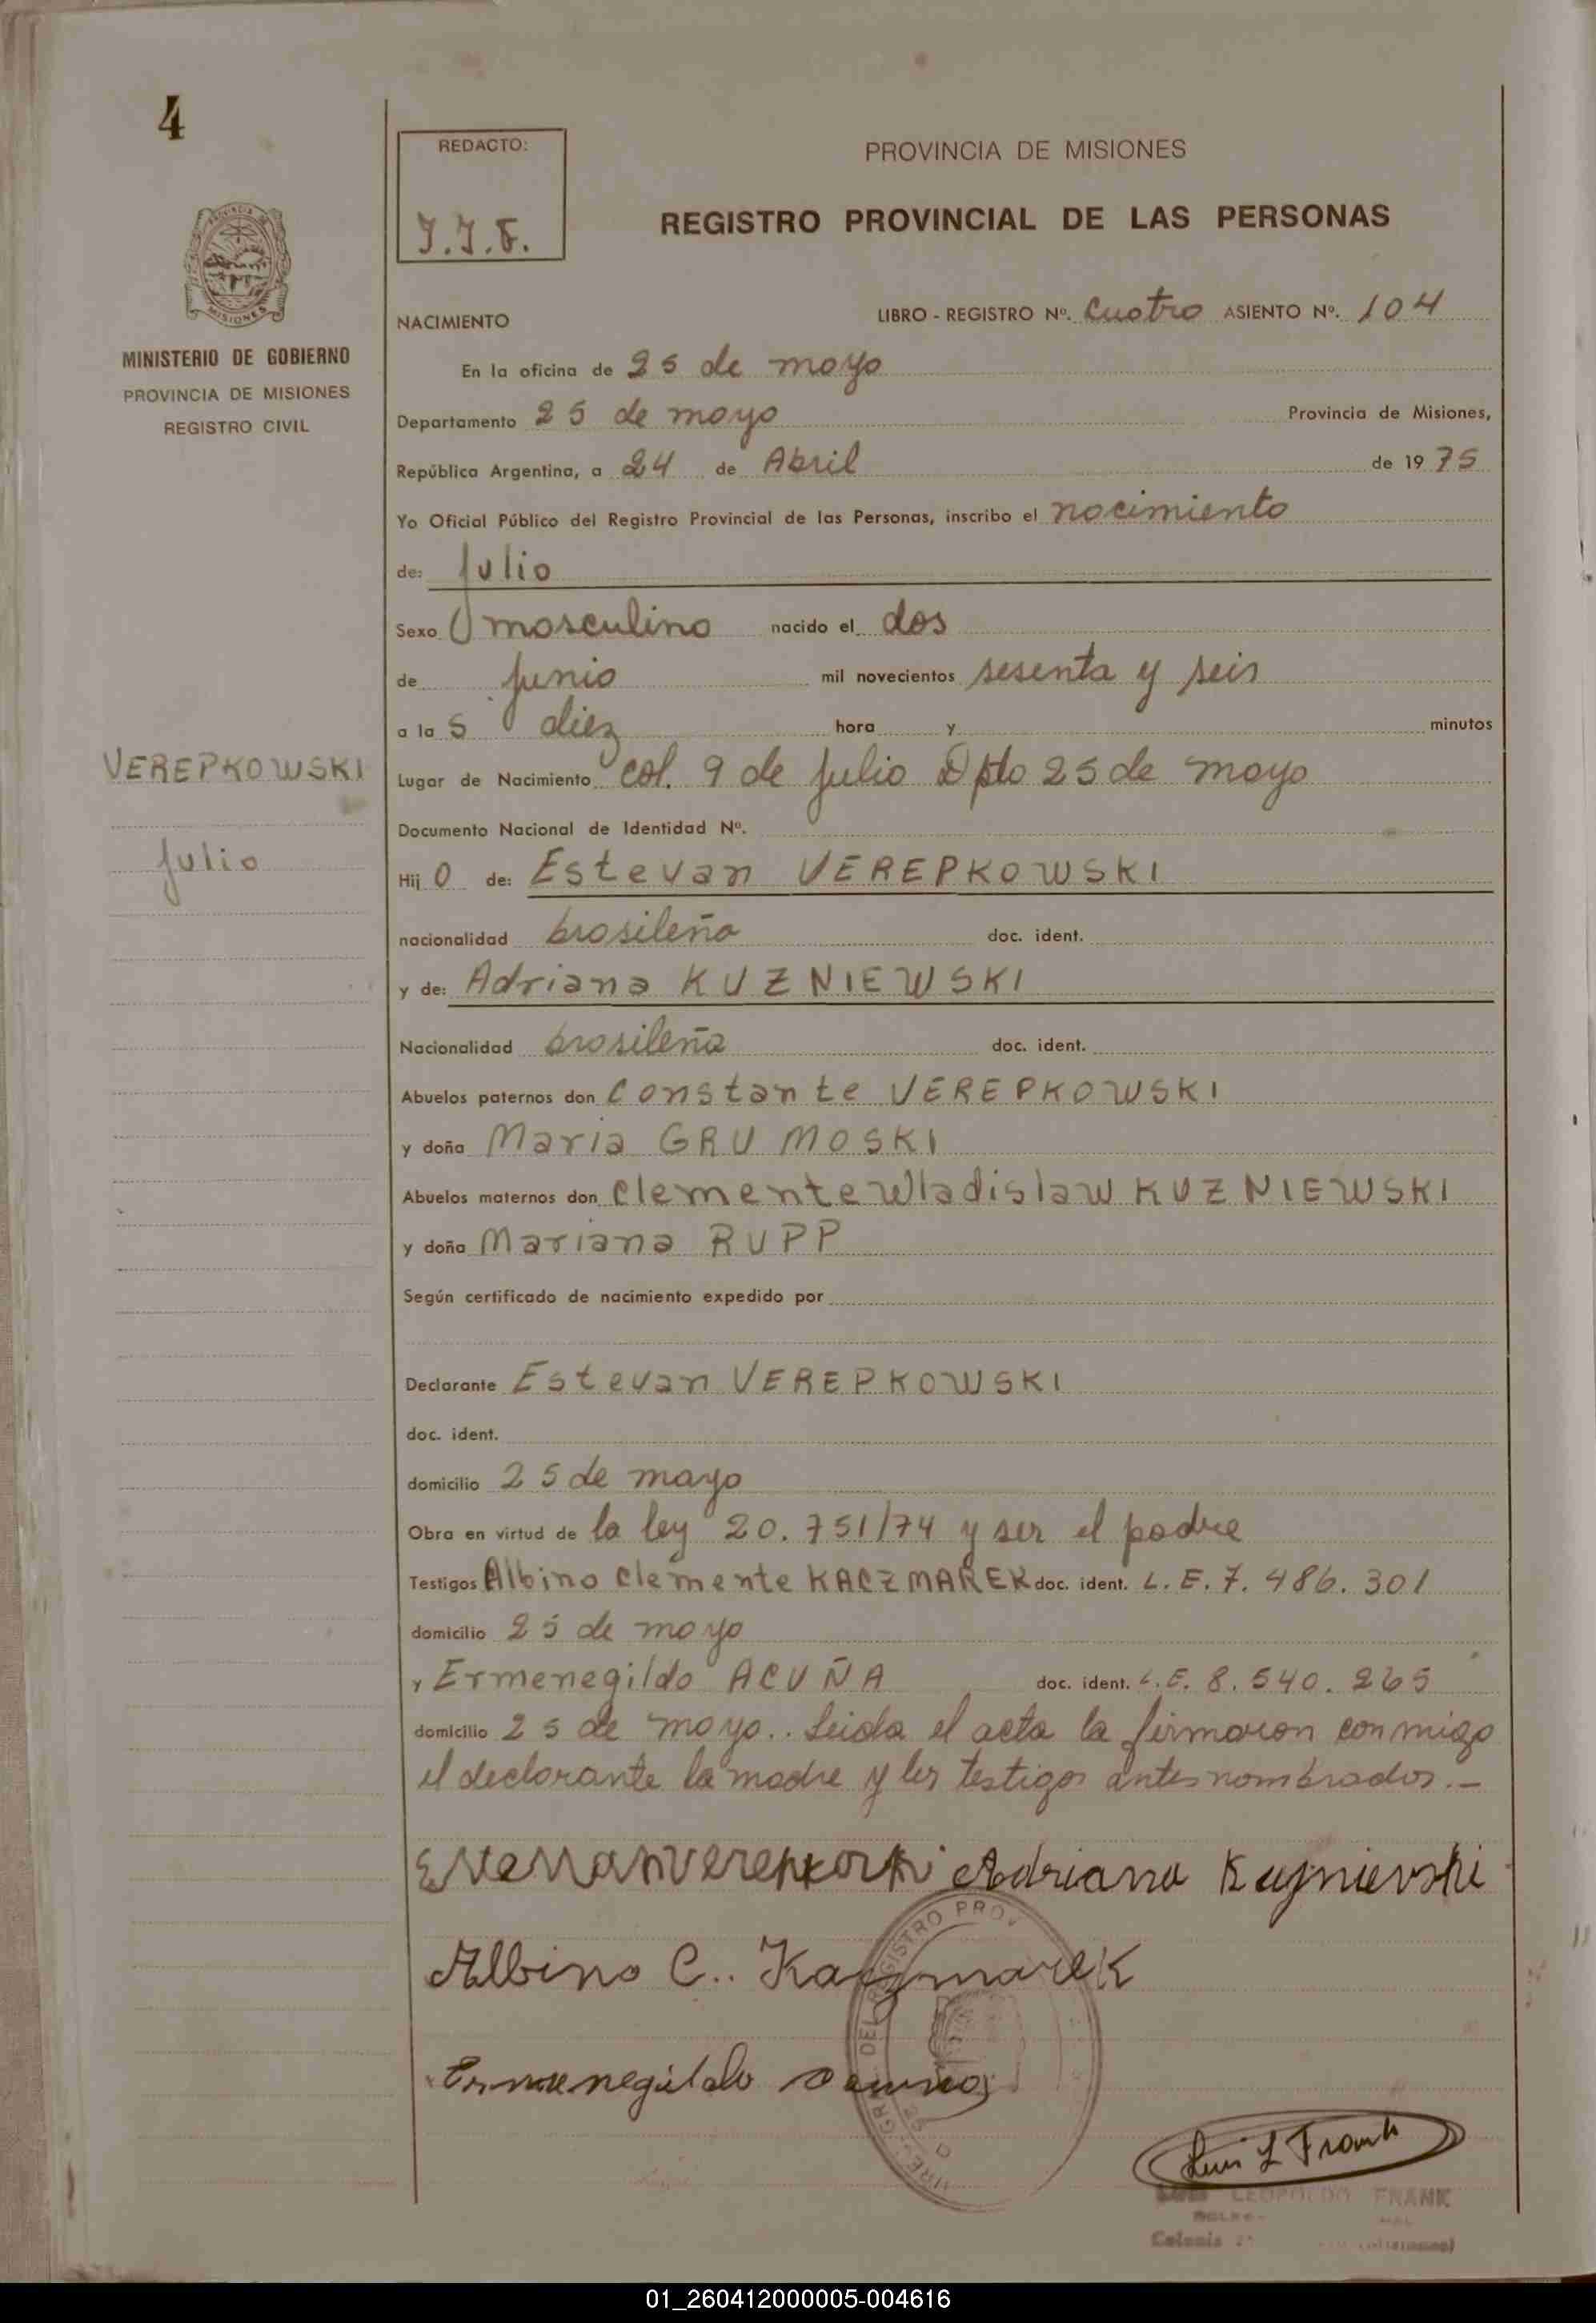 4
REDACTO:
J.J.F.
PROVINCIA DE MISIONES
REGISTRO PROVINCIAL DE LAS PERSONAS
MISIONES
MINISTERIO DE GOBIERNO
PROVINCIA DE MISIONES
REGISTRO CIVIL
NACIMIENTO
LIBRO - REGISTRO Nº. Cuatro ASIENTO Nº. 104
En la oficina de 25 de mayo
Departamento 25 de mayo Provincia de Misiones,
República Argentina, a 24 de Abril de 1975
Yo Oficial Público del Registro Provincial de las Personas, inscribo el nacimiento
de: Julio
Sexo masculino nacido el dos
de junio mil novecientos sesenta y seis
a las diez hora y minutos
VEREPKOWSKI
Julio
Lugar de Nacimiento Col. 9 de Julio Dpto 25 de mayo
Documento Nacional de Identidad Nº.
Hijo de: Estevan VEREPKOWSKI
nacionalidad brasileña doc. ident.
y de: Adriana KUZNIEWSKI
Nacionalidad brasileña doc. ident.
Abuelos paternos don Constante VEREPKOWSKI
y doña Maria GRUMOSKI
Abuelos maternos don Clemente Wladislaw KUZNIEWSKI
y doña Mariana RUPP
Según certificado de nacimiento expedido por
Declarante Estevan VEREPKOWSKI
doc. ident.
domicilio 25 de mayo
Obra en virtud de la ley 20.751/74 y ser el padre
Testigos Albino Clemente KACZMAREK doc. ident. L.E. 7.486.301
domicilio 25 de mayo
y Ermenegildo ACUÑA doc. ident. L.E. 8.540.265
domicilio 25 de mayo.. Leida el acta la firmaron conmigo
el declarante la madre y los testigos antes nombrados.-
Estevan Verepkoski Adriana Kuznievski
Albino C.. Kaczmarek
Ermenegildo Acuña
DEL REGISTRO PROV
Luis L Frank
LUIS LEOPOLDO FRANK
Colonia
01_260412000005-004616